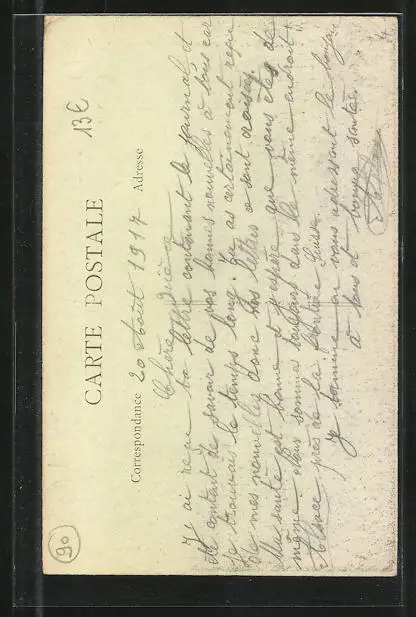 CARTE POSTALE
Correspondance
Adresse
13€
90
20 Août 1917
Chère
J'ai reçu ta lettre contenant le journal et
content de savoir de vos bonnes nouvelles à tous car
je trouvais le temps long. Tu as certainement reçu
de mes nouvelles donc les lettres se sont croisées
Ma santé est bonne et j'espère que vous êtes de
même. Nous sommes toujours dans le même endroit
Alsace près de la frontière Suisse.
Je termine en vous adressant le
à tous et bonne santé